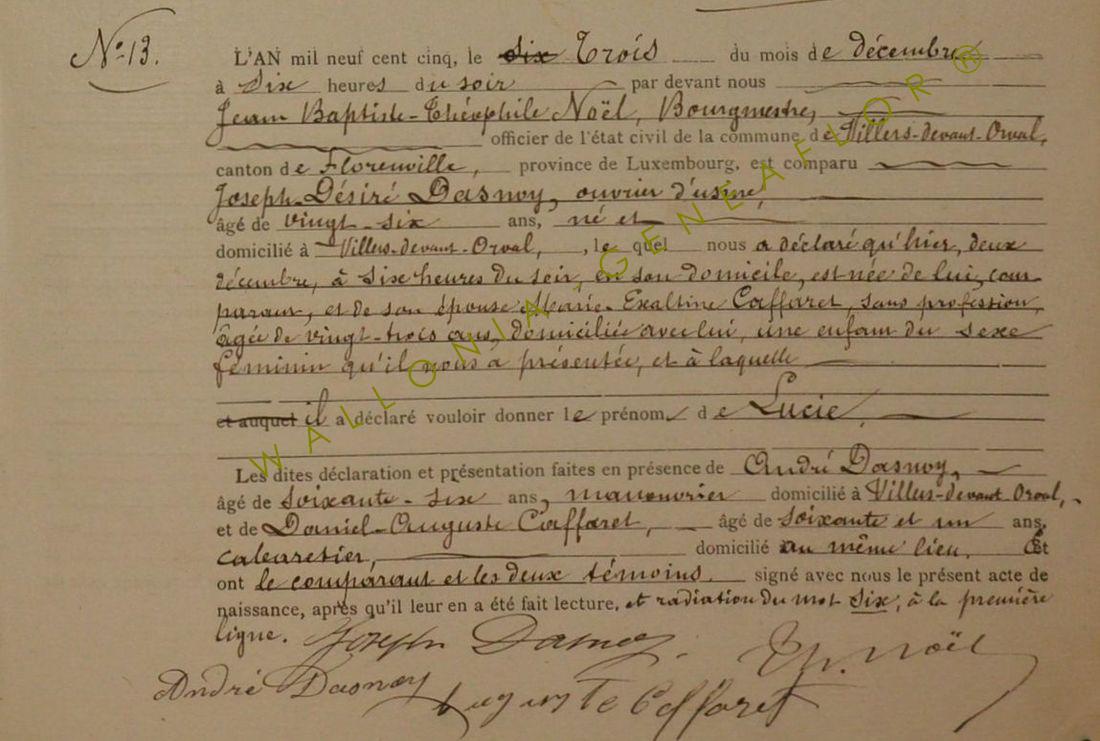 No 13.
L'AN mil neuf cent cinq, le six Trois du mois de décembre
à Six heures du soir par devant nous
Jean Baptiste-Théophile Noël, Bourgmestre,
officier de l'état civil de la commune de Villers-devant-Orval,
canton de Florenville, province de Luxembourg, est comparu
Joseph-Désiré Dasnoy, ouvrier d'usine,
âgé de vingt-six ans, né et
domicilié à Villers-devant-Orval, , le quel nous a déclaré qu'hier, deux
décembre, à six heures du soir, en son domicile, est née de lui, com-
parant, et de son épouse Marie-Exaltine Caffaret, sans profession,
âgée de vingt-trois ans, domiciliée avec lui, une enfant du sexe
féminin qu'il nous a présentée, et à laquelle
et auquel il a déclaré vouloir donner le prénom de Lucie,
Les dites déclaration et présentation faites en présence de André Dasnoy,
âgé de soixante-six ans, manouvrier domicilié à Villers-devant Orval,
et de Daniel-Auguste Caffaret, âgé de soixante et un ans,
cabaretier, domicilié au même lieu. Et
ont le comparant et les deux témoins. signé avec nous le présent acte de
naissance, après qu'il leur en a été fait lecture, et radiation du mot six, à la première
ligne. Joseph Dasnoy. Th. Noël
André Dasnoy Auguste Caffaret
WALLONIA-GENEAFLOR®